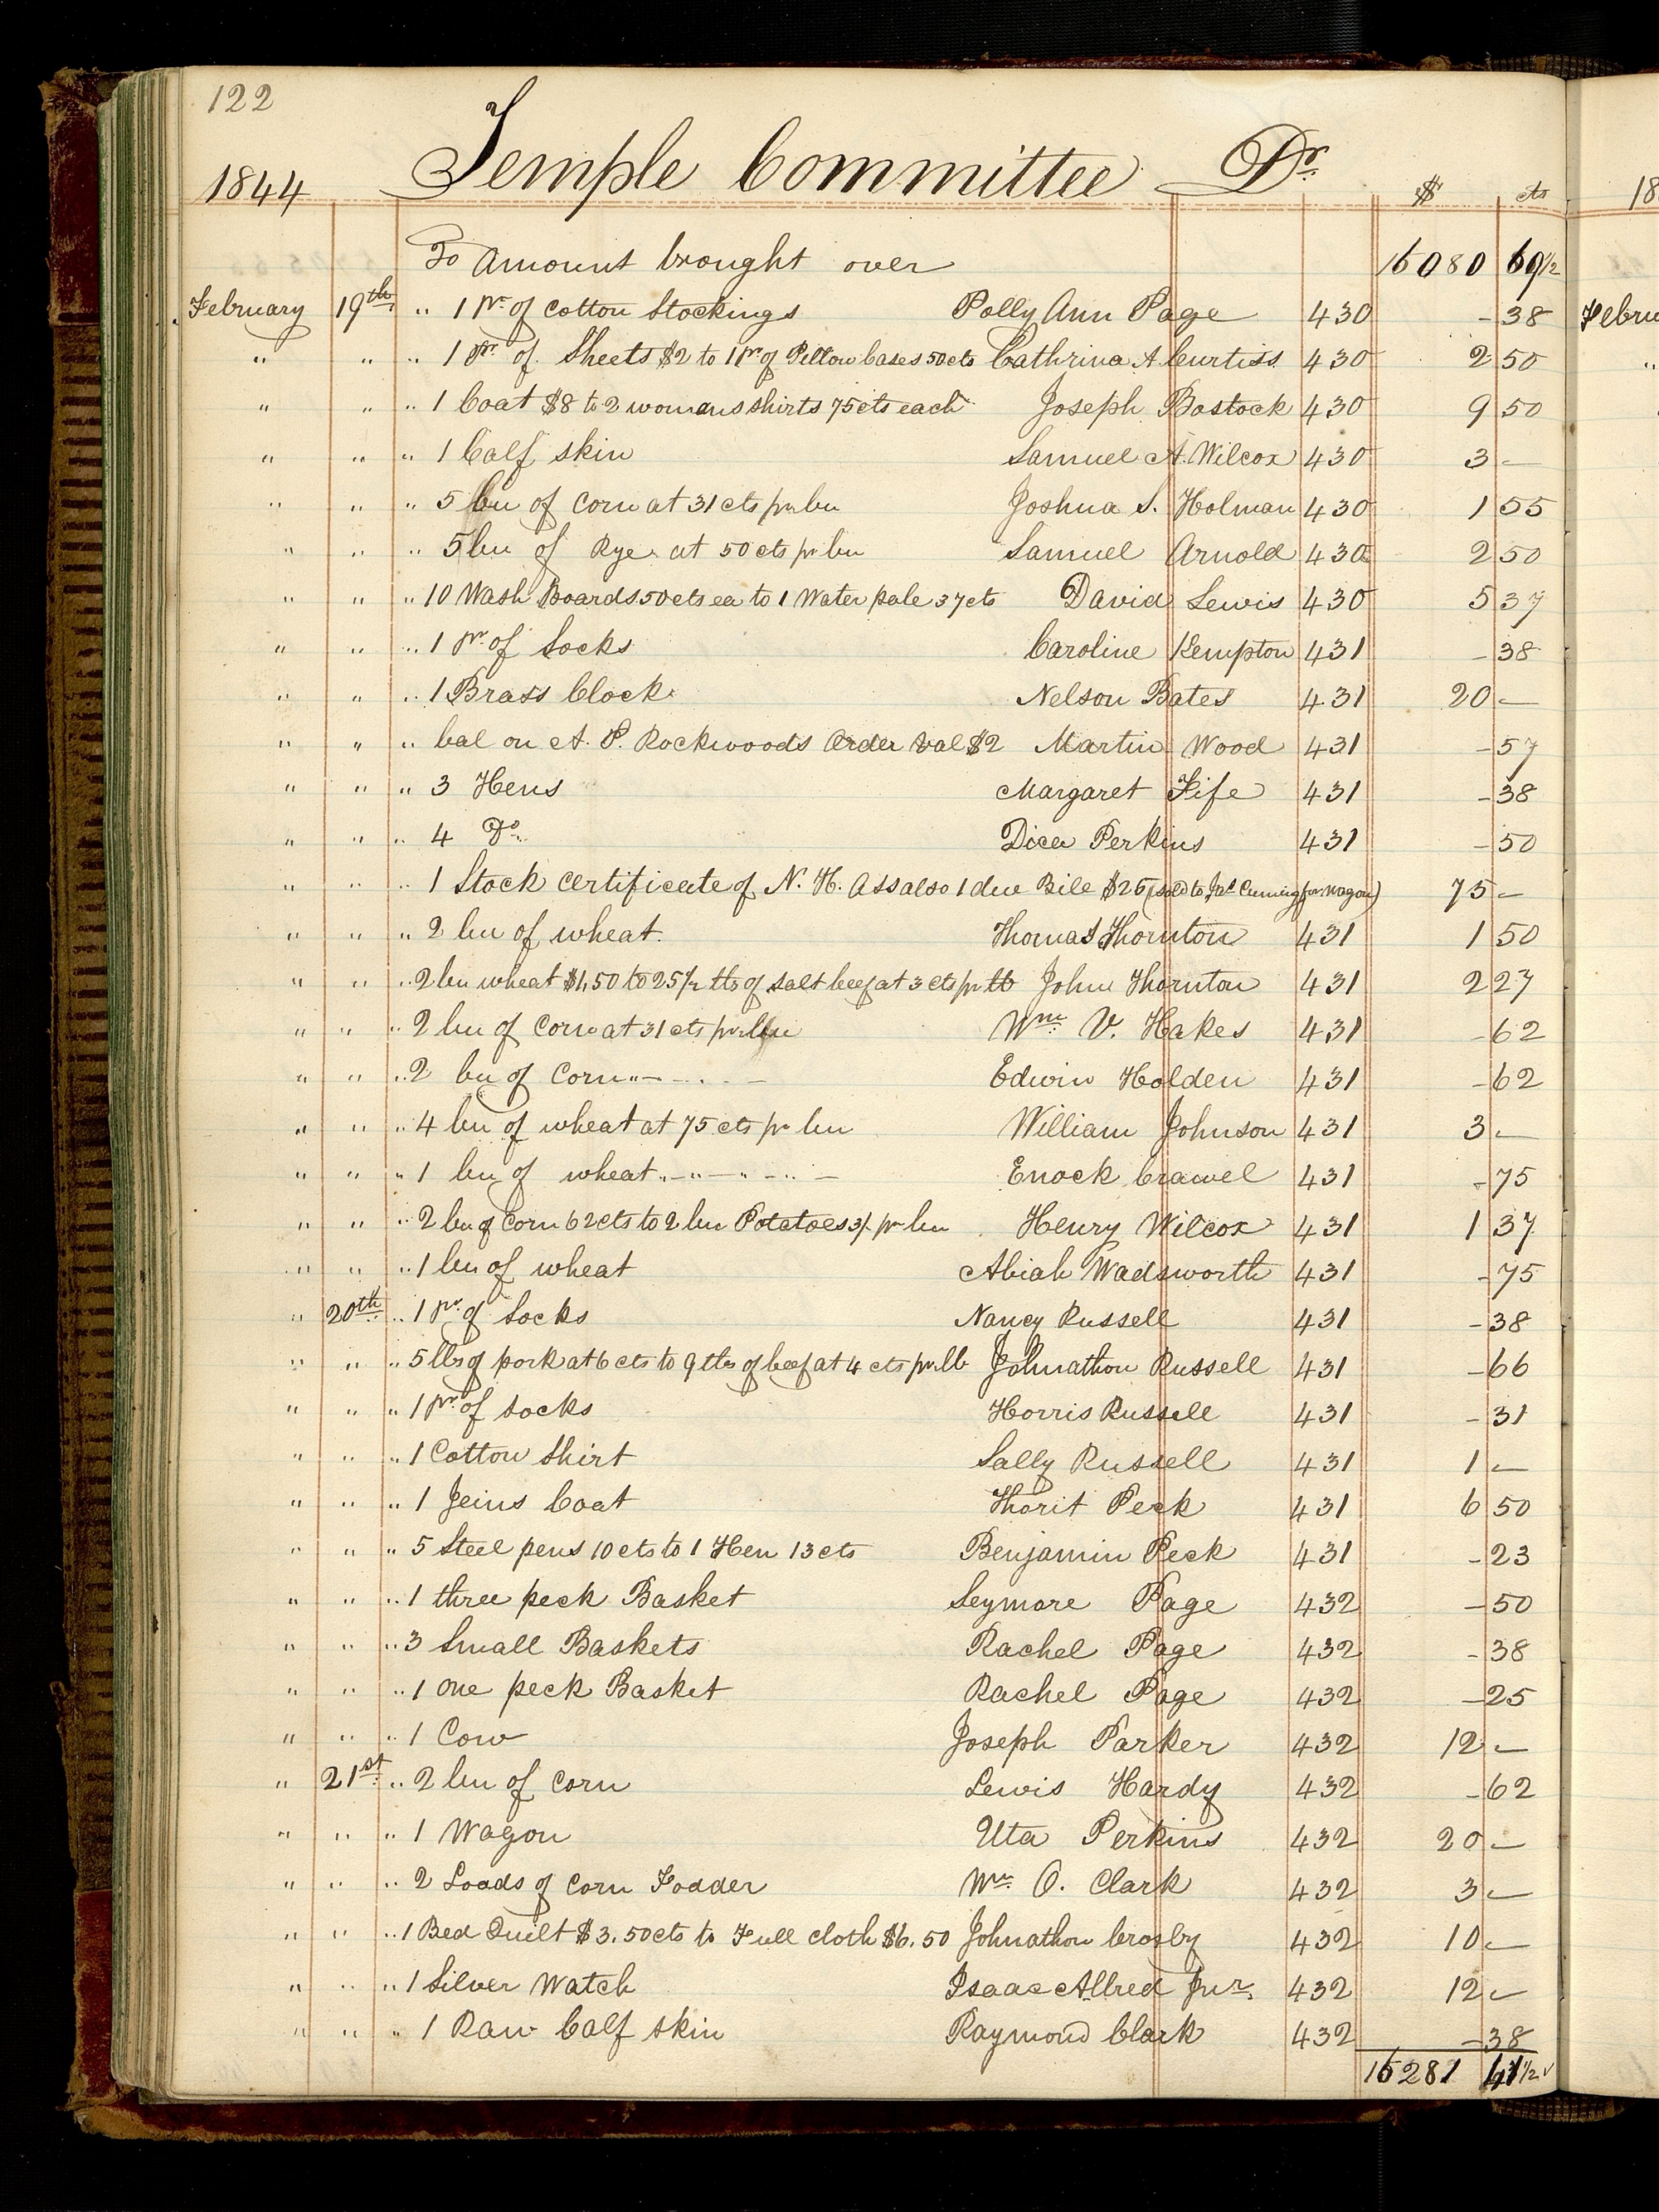 122
1844 Temple Committee Dr. $ cts
To Amount brought over 16080 69 1/2
February 19th " 1 pr. of Cotton Stockings Polly Ann Page 430 - 38
" " " 1 pr. of Sheets $2 to 1 pr of Pillow Cases 50cts Cathrina A Curtiss 430 2 50
" " " 1 Coat $8 to 2 womans shirts 75cts each Joseph Bostock 430 9 50
" " " 1 Calf skin Samuel A. Wilcox 430 3 -
" " " 5 bu of Corn at 31 cts pr bu Joshua S. Holman 430 1 55
" " " 5 bu of Rye at 50 cts pr bu Samuel Arnold 430 2 50
" " " 10 Wash Boards 50cts ea to 1 Water pale 37cts David Lewis 430 5 37
" " " 1 pr. of Socks Caroline Kempton 431 - 38
" " " 1 Brass Clock Nelson Bates 431 20 -
" " " bal on A. P. Rockwoods Order val $2 Martin Wood 431 - 57
" " " 3 Hens Margaret Fife 431 - 38
" " " 4 Do. Dicea Perkins 431 - 50
" " " 1 Stock Certificate of N. H. Ass also 1 due Bill $25 (sold to Jas Cuming for wagon) 75 -
" " " 2 bu of wheat. Thomas Thornton 431 1 50
" " " 2 bu wheat $1,50 to 25 1/2 lbs of salt beef at 3 cts pr lb John Thornton 431 2 27
" " " 2 bu of Corn at 31 cts pr bu Wm. V. Hakes 431 - 62
" " " 2 bu of Corn " - - . . - Edwin Holden 431 - 62
" " " 4 bu of wheat at 75 cts pr bu William Johnson 431 3 -
" " " 1 bu of wheat " - " - " - " - Enock Crawel 431 - 75
" " " 2 bu of Corn 62cts to 2 bu Potatoes 3/ pr bu Henry Wilcox 431 1 37
" " " 1 bu of wheat Abiah Wadsworth 431 - 75
" 20th " 1 pr. of Socks Nancy Russell 431 - 38
" " " 5 lbs of pork at 6 cts to 9 lbs of beef at 4 cts pr lb Johnathon Russell 431 - 66
" " " 1 pr. of socks Horris Russell 431 - 31
" " " 1 Cotton Shirt Sally Russell 431 1 -
" " " 1 Jeins Coat Thorit Peck 431 6 50
" " " 5 Steel pens 10cts to 1 Hen 13cts Benjamin Peck 431 - 23
" " " 1 three peck Basket Seymore Page 432 - 50
" " " 3 Small Baskets Rachel Page 432 - 38
" " " 1 one peck Basket Rachel Page 432 - 25
" " " 1 Cow Joseph Parker 432 12 -
" 21st " 2 bu of Corn Lewis Hardy 432 - 62
" " " 1 Wagon Uta Perkins 432 20 -
" " " 2 Loads of Corn Fodder Wm. O. Clark 432 3 -
" " " 1 Bed Quilt $3.50cts to Full Cloth $6.50 Johnathon Crosby 432 10 -
" " " 1 Silver Watch Isaac Allred Jur. 432 12 -
" " " 1 Raw Calf skin Raymond Clark 432 - 38
16281 41 1/2 ✓
18
Febru
"